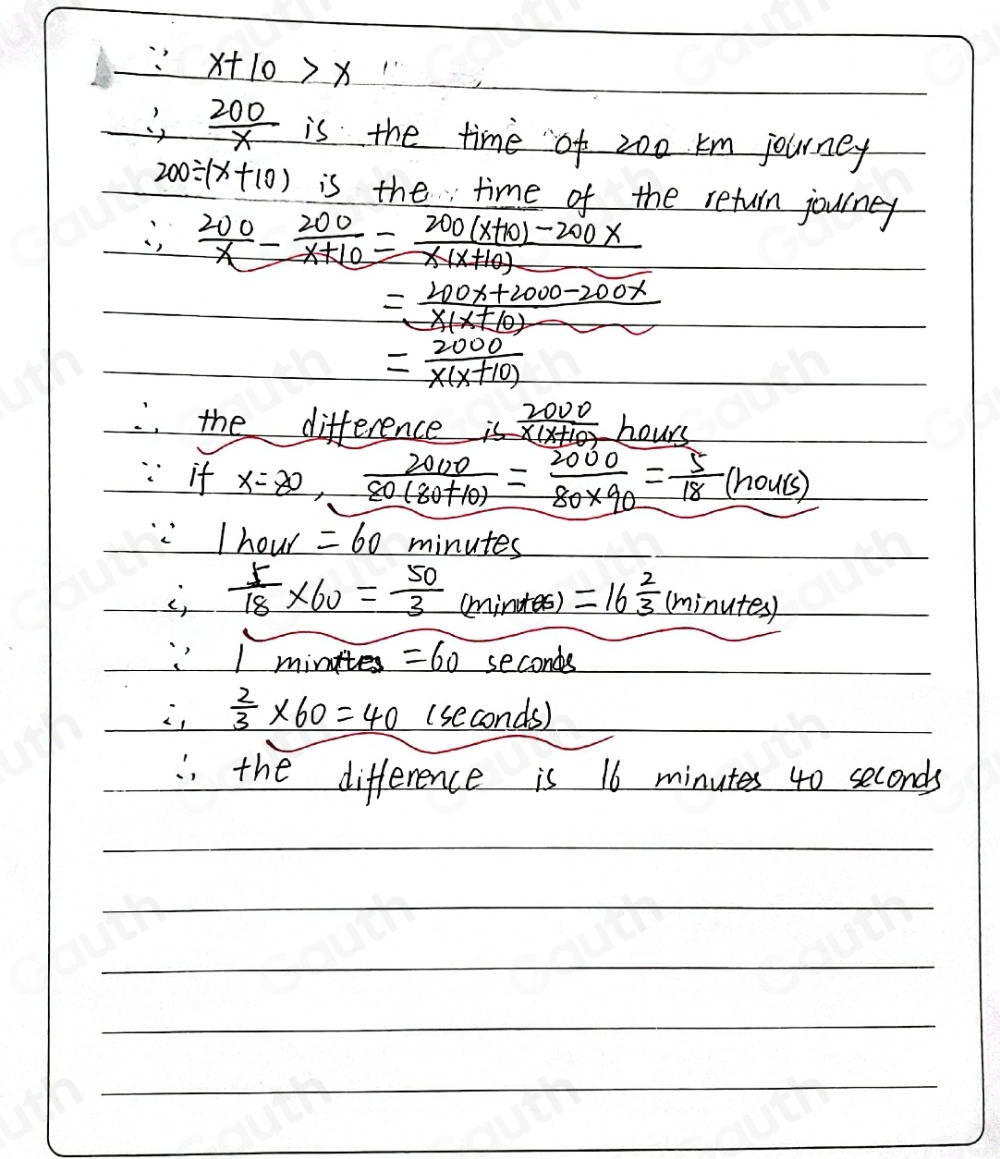 ∵ x+10 > x
∴ 200/x is the time of 200 km journey
200÷(x+10) is the time of the return journey
∴ 200/x - 200/(x+10) = (200(x+10)-200x)/(x(x+10))
= (200x+2000-200x)/(x(x+10))
= 2000/(x(x+10))
∴ the difference is 2000/(x(x+10)) hours
∵ if x=80, 2000/(80(80+10)) = 2000/(80×90) = 5/18 (hours)
∵ 1 hour = 60 minutes
∴ 5/18 ×60 = 50/3 (minutes) = 16 2/3 (minutes)
∵ 1 minutes = 60 seconds
∴ 2/3 ×60 = 40 (seconds)
∴ the difference is 16 minutes 40 seconds